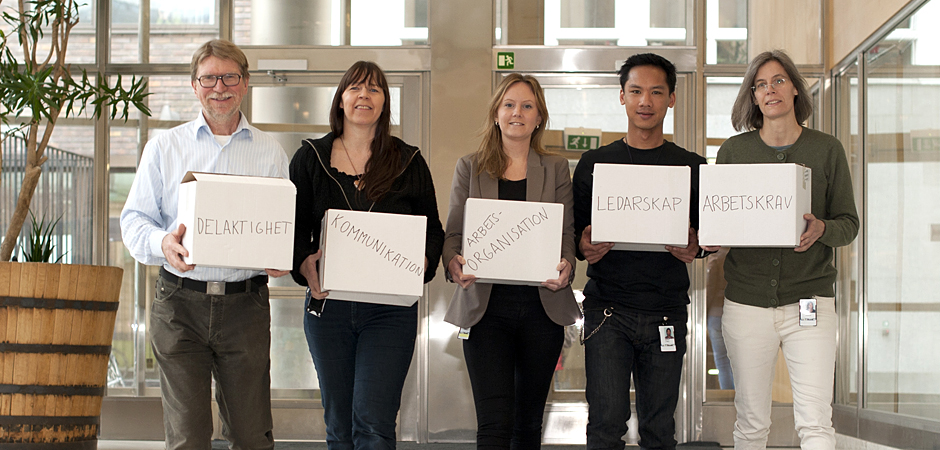 DELAKTIGHET
KOMMUNIKATION
ARBETS-
ORGANISATION
LEDARSKAP
ARBETSKRAV